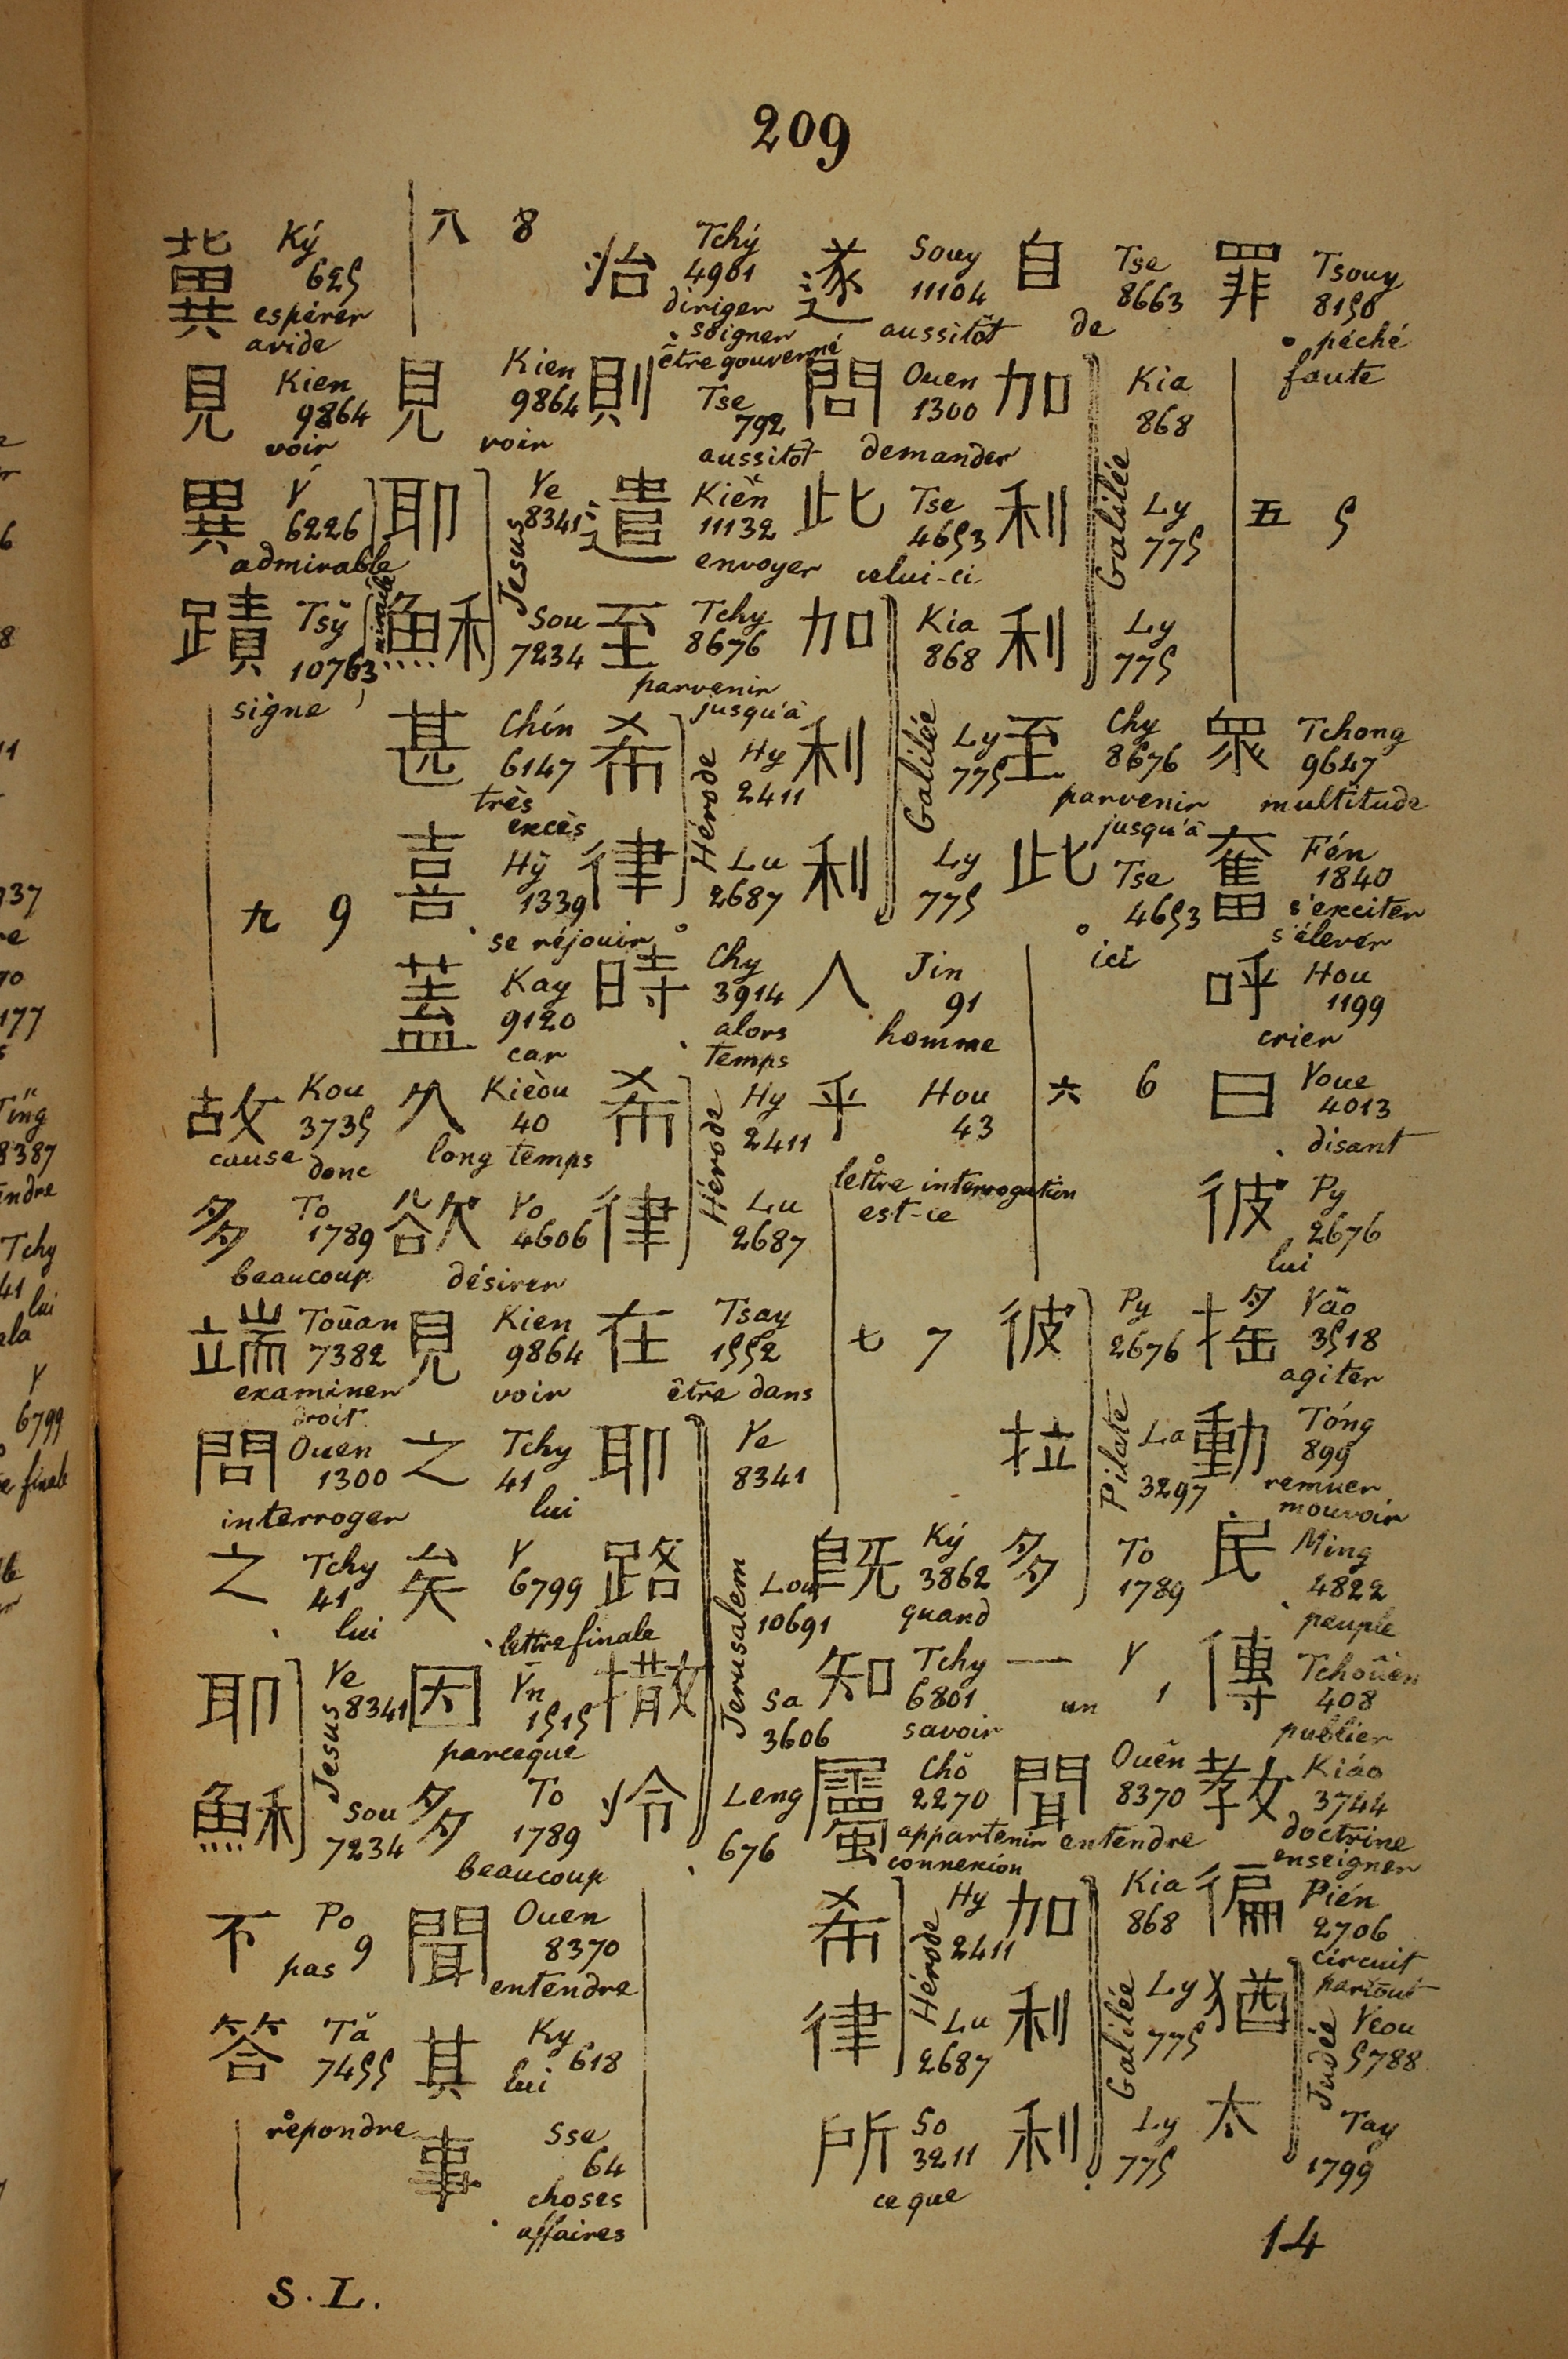 209
罪 Tsouy 8150 péché faute
五 5
眾 Tchong 9647 multitude
奮 Fén 1840 s'exciter s'élever
呼 Hou 1199 crier
曰 Youe 4013 disant
彼 Py 2676 lui
搖 Yâo 3518 agiter
動 Tóng 899 remuer mouvoir
民 Ming 4822 peuple
傳 Tchoûen 408 publier
教 Kiáo 3744 doctrine enseigner
徧 Pién 2706 circuit partout
猶 Yeou 5788
太 Tay 1799
Judée
自 Tse 8663 de
加 Kia 868
利 Ly 775
利 Ly 775
Galilée
至 Chy 8676 parvenir jusqu'à
此 Tse 4653 ici
六 6
彼 Py 2676
拉 La 3297
多 To 1789
Pilate
一 Y 1 un
聞 Ouên 8370 entendre
加 Kia 868
利 Ly 775
利 Ly 775
Galilée
遂 Souy 11104 aussitôt
問 Ouen 1300 demander
此 Tse 4653 celui-ci
加 Kia 868
利 Ly 775
利 Ly 775
Galilée
人 Jin 91 homme
乎 Hou 43 lettre interrogation est-ce
七 7
既 Ký 3862 quand
知 Tchy 6801 savoir
屬 Chŏ 2270 appartenir connexion
希 Hy 2411
律 Lu 2687
Hérode
所 So 3211 ce que
治 Tchý 4901 diriger soigner être gouverné
則 Tse 792 aussitôt
遣 Kièn 11132 envoyer
至 Tchy 8676 parvenir jusqu'à
希 Hy 2411
律 Lu 2687
Hérode
時 Chy 3914 alors temps
希 Hy 2411
律 Lu 2687
Hérode
在 Tsay 1552 être dans
耶 Ye 8341
路 Lou 10691
撒 Sa 3606
冷 Leng 676
Jerusalem
八 8
見 Kien 9864 voir
耶 Ye 8341
穌 Sou 7234
Jesus
甚 Chín 6147 très excès
喜 Hỳ 1339 se réjouir
蓋 Kay 9120 car
久 Kièou 40 long temps
欲 Yo 4606 désirer
見 Kien 9864 voir
之 Tchy 41 lui
矣 Y 6799 lettre finale
因 Yn 1515 parceque
多 To 1789 beaucoup
聞 Ouen 8370 entendre
其 Ky 618 lui
事 Sse 64 choses affaires
冀 Ký 625 espérer avide
見 Kien 9864 voir
異 Y 6226 admirable
蹟 Tsý 10763 signe
九 9
故 Kou 3735 cause donc
多 To 1789 beaucoup
端 Toūan 7382 examiner droit
問 Ouen 1300 interroger
之 Tchy 41 lui
耶 Ye 8341
穌 Sou 7234
Jesus
不 Po 9 pas
答 Tă 7455 répondre
14
S. L.